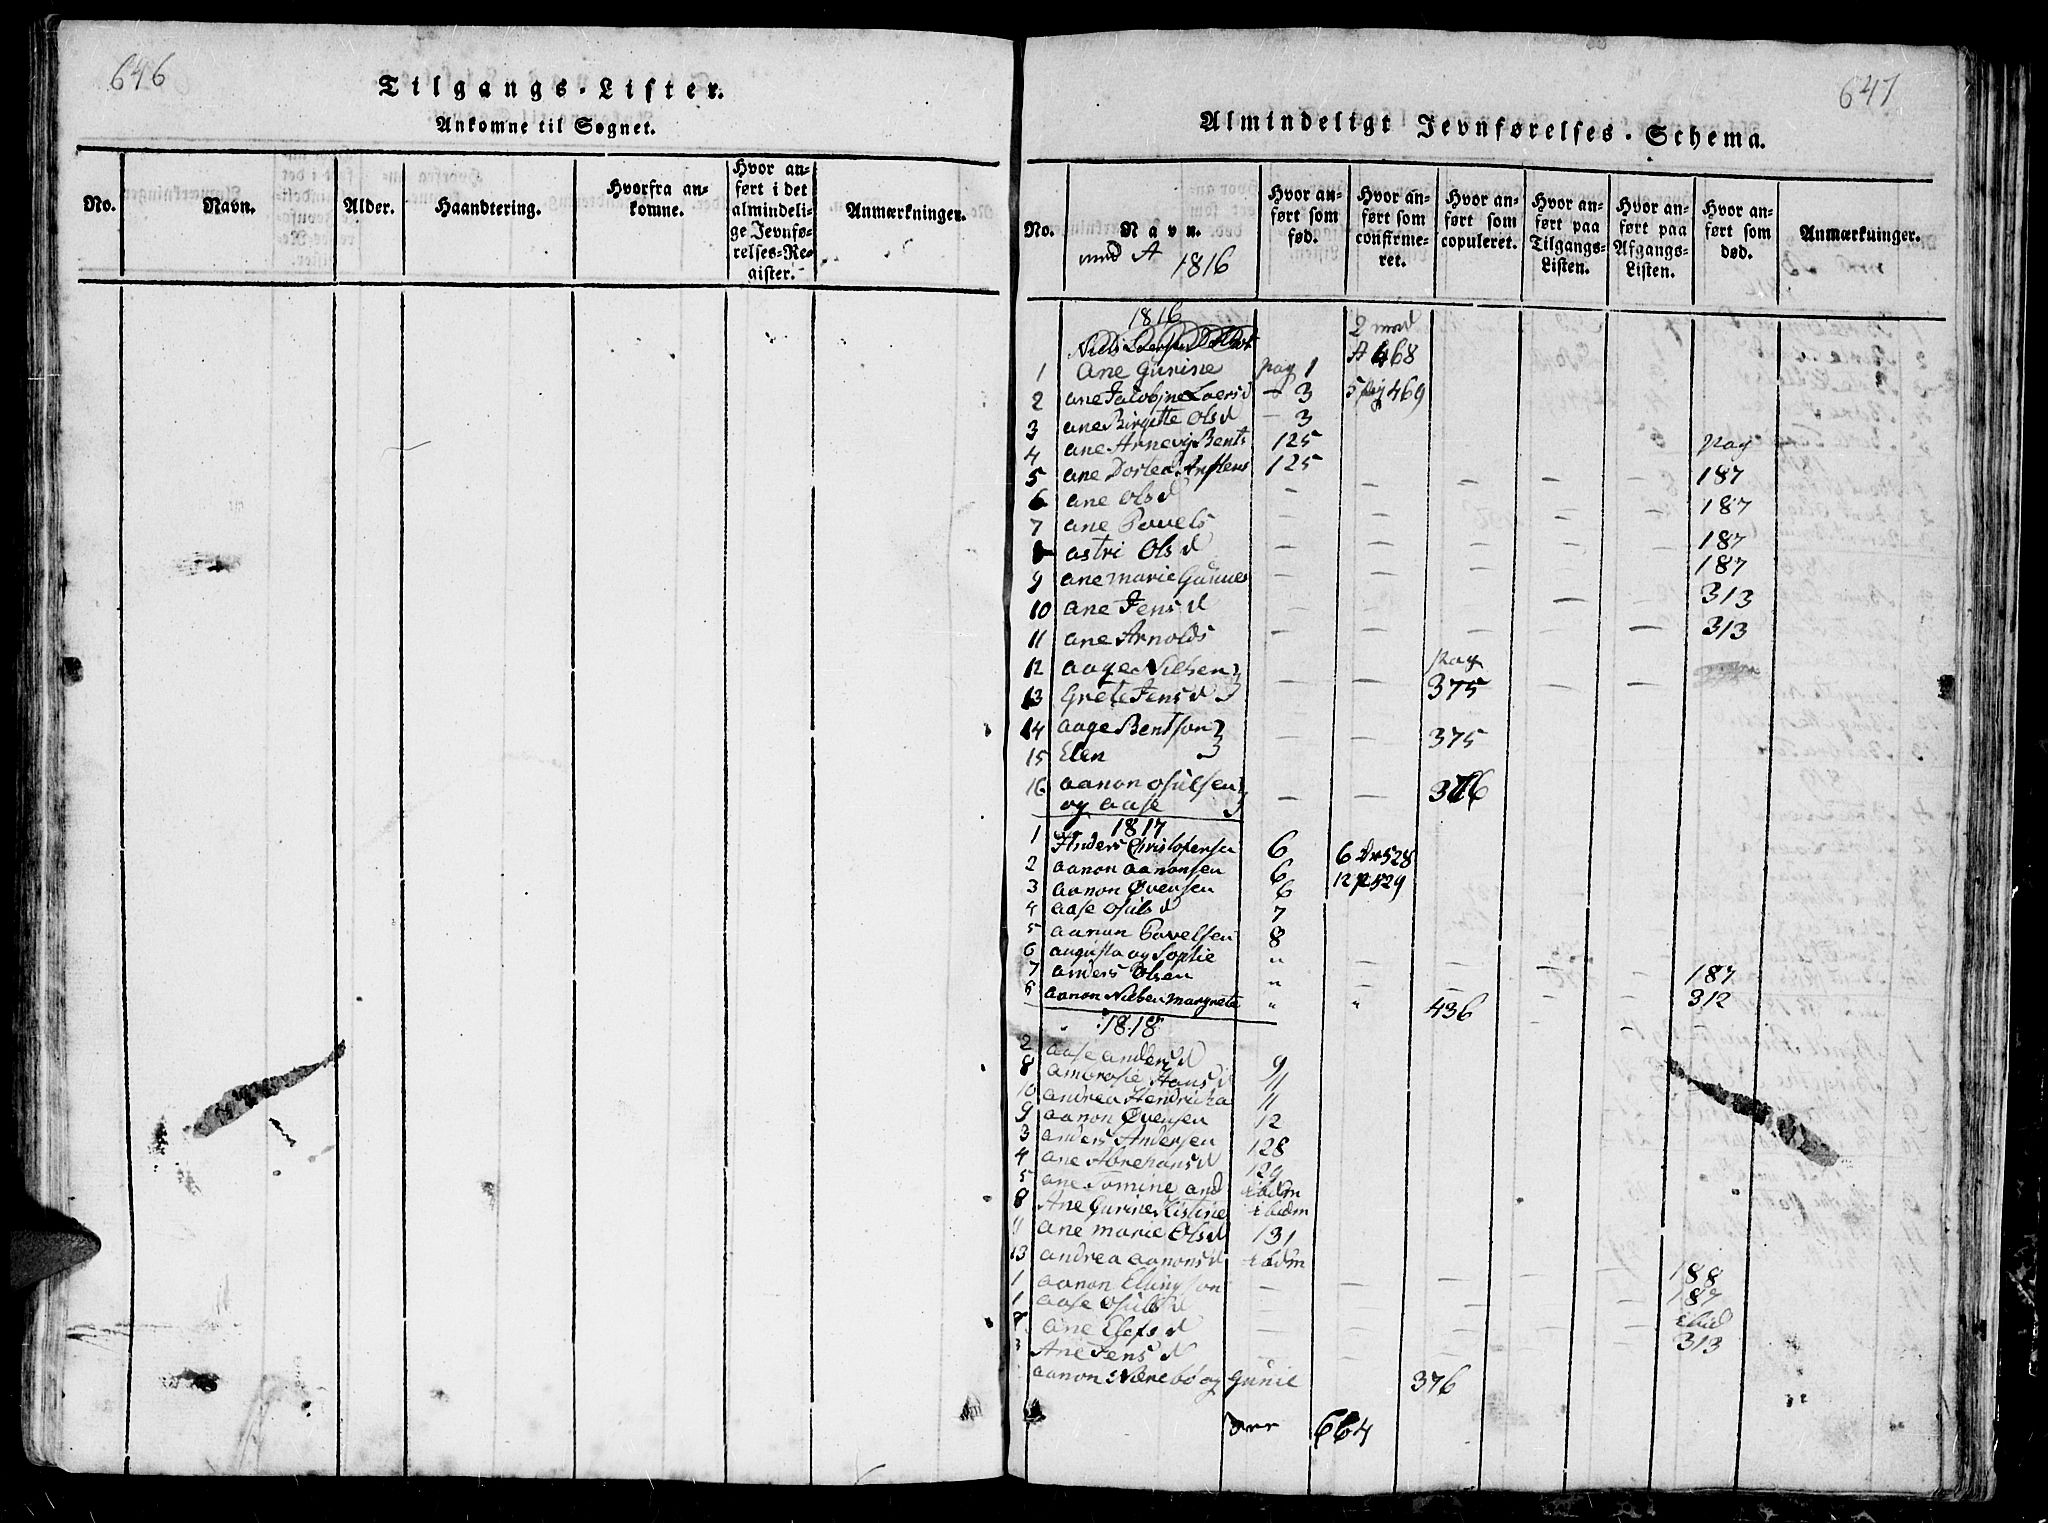 646
Tilgangs-Lister.
Ankomne til Sognet.
No. Navn. Alder. Haandtering. Hvorfra an-komne. Hvor an-ført i det almindeli-ge Jevnfø-relses-Re-gister. Anmærkninger.
647
Almindeligt Jevnførelses-Schema.
No. Navn. Hvor an-ført som fød. Hvor an-ført som confirme-ret. Hvor an-ført som copuleret. Hvor an-ført paa Tilgangs-Listen. Hvor an-ført paa Afgangs-Listen. Hvor an-ført som død. Anmærkninger.
med A 1816
1816
1 Ane Gurine pag 1 A 468
2 ane Jacobine Laersd - 3 5 pag 469
3 ane Birgitte Olsd - 3
4 ane Arnevig Bents 125 pag
5 ane Dortea 125 187
6 ane Olsd - - - - - 187
7 ane Povels - - - - - 187
astri Olsd - - - - - 187
9 ane marie Gunnes - - - - - 313
10 ane Jensd - - - - - 313
11 ane Arnolds - - - - -
12 aage Nielsen pag
13 Grete Jensd - - 375 - -
14 aage Bentson
15 Elen - - 375
16 aanon Osulsen
og aase - - 376
1817
1 Anders Christofersen 6 6 528
2 aanon aanonsen 6 12 p 529
3 aanon Ovensen 6
4 aase Osulsd 7
5 aanon Povelsen 8
6 augusta og Sophie " - - - - 187
7 anders Olsen " - - - - 312
8 aanon Nielsen margrete " " 436 - -
1818
2 aase andersd 9
8 ambrosie Hansd 11
10 andrea Hendricka 11
9 aanon Ovensen 12
3 anders Andersen 128
4 ane Abrehamsd 129
5 ane Tomine and ibidm
8 Ane Gurine Kistine ibidm
11 ane marie Olsd 131
13 andrea aanonsd ibidm
1 aanon Ellingson - - - - - 188
1 aase Osulsd - - - - 187
ane Elefsd - - - - - ibid
3 Ane Jensd - - - - - 313
aanon Nærebö og Gunil 376
664